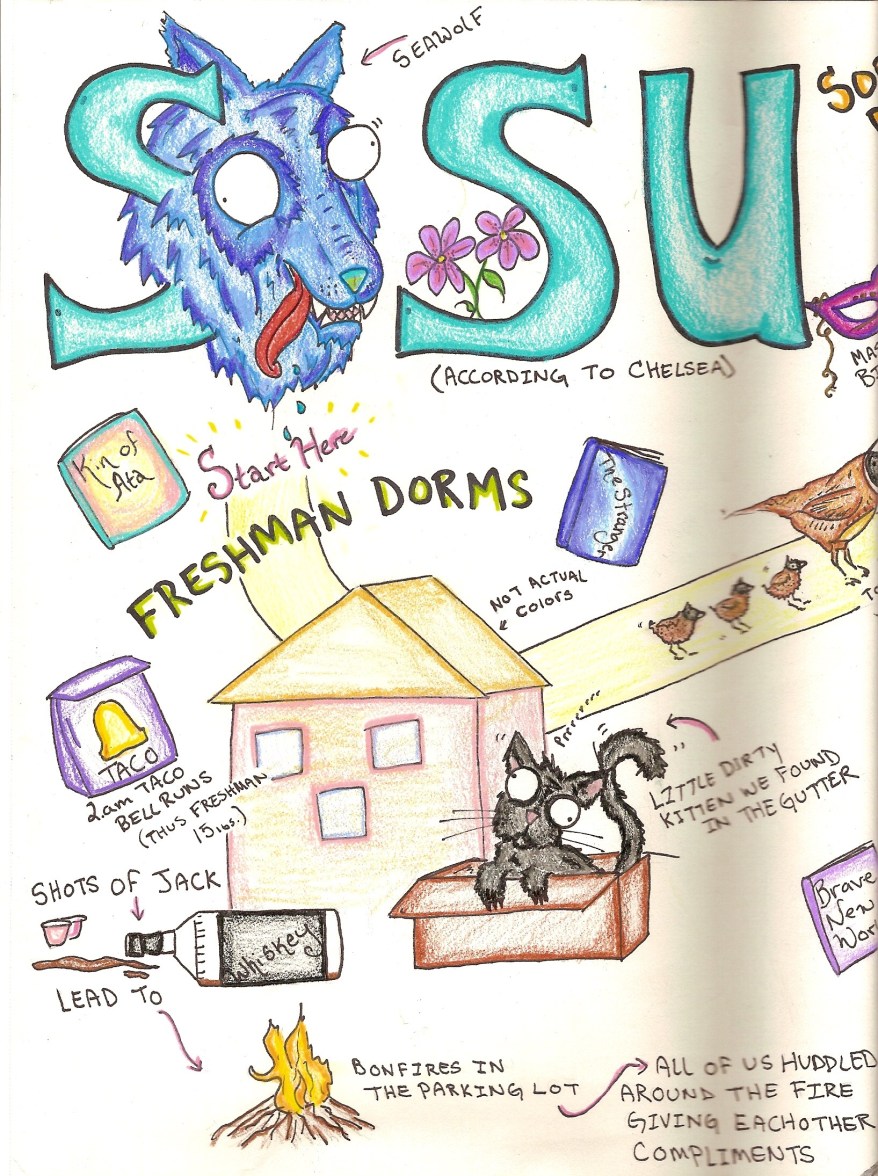 SEAWOLF
SSU
(ACCORDING TO CHELSEA)
Start Here
Kin of
Ata
FRESHMAN DORMS
The Stranger
NOT ACTUAL
COLORS
Prrrrrrrr
TACO
2am TACO
BELL RUNS
(THUS FRESHMAN
15 lbs.)
LITTLE DIRTY
KITTEN WE FOUND
IN THE GUTTER
SHOTS OF JACK
Whiskey
Brave
New
Wor
LEAD TO
BONFIRES IN
THE PARKING LOT
ALL OF US HUDDLED
AROUND THE FIRE
GIVING EACHOTHER
COMPLIMENTS